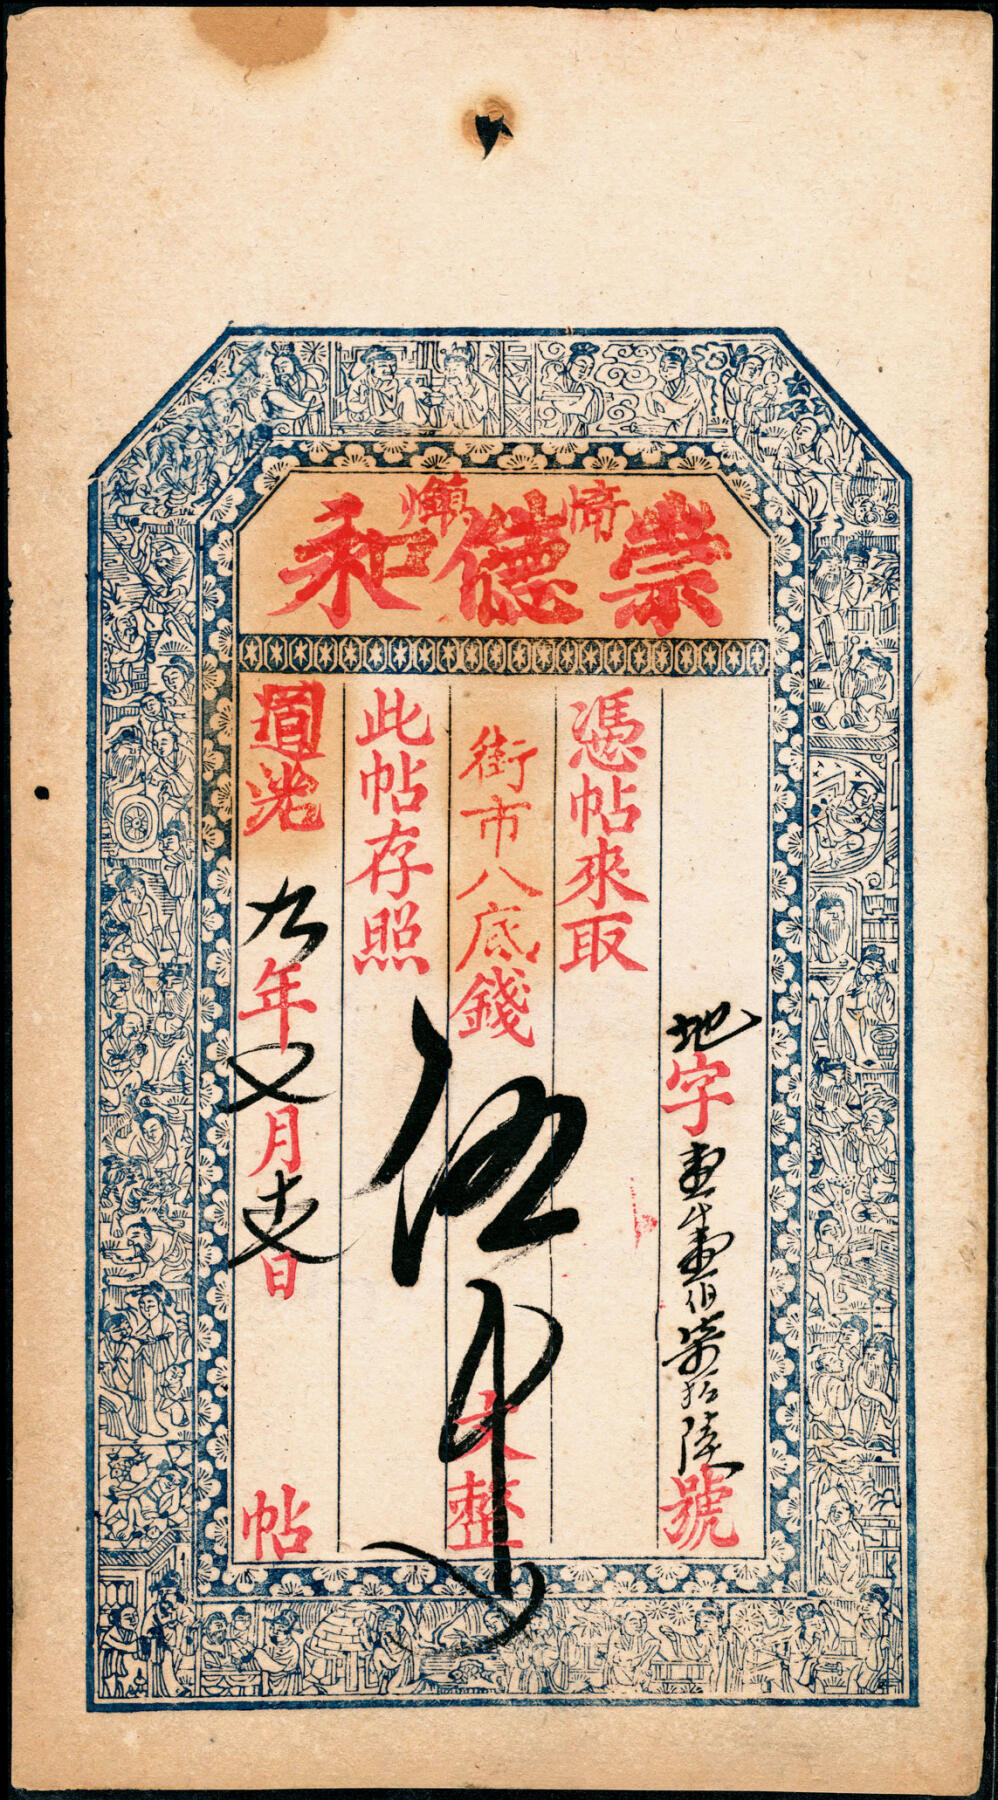 崇德和
地字壹千壹伯柒拾陸號
憑帖來取
街市八底錢伍千文整
此帖存照
道光九年月日帖